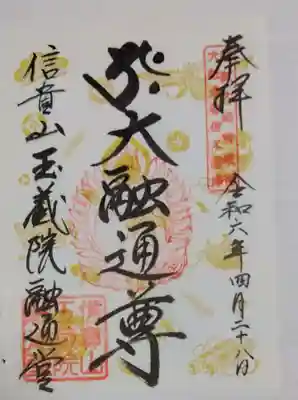 奉拝
令和六年四月二十八日
大融通尊
信貴山玉蔵院融通堂